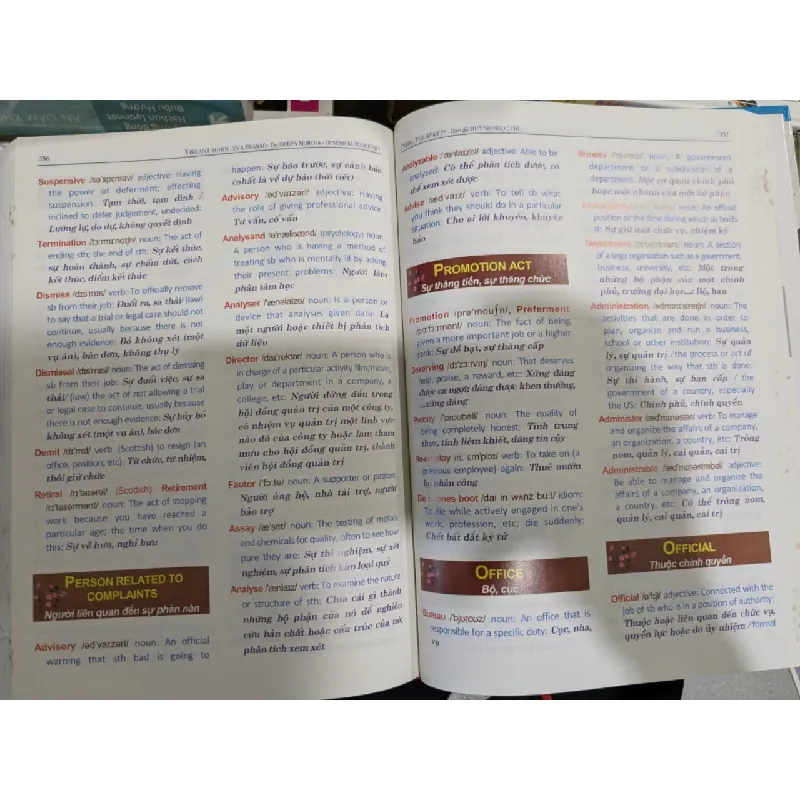 356
VIKRANT
Suspensive /sə'spensɪv/ adjective: Having
the power of deferment; effecting
suspension. Tạm thời, tạm đình /
inclined to defer judgement, undecided:
Lưỡng lự, do dự, không quyết định
Termination noun: The act of
ending sth; the end of sth: Sự kết thúc,
sự hoàn thành, sự chấm dứt, cách
kết thúc, điểm kết thúc
Dismiss /dɪs'mɪs/ verb: To officially remove
sb from their job: Đuổi ra, sa thải/ (law)
to say that a trial or legal case should not
continue, usually because there is not
enough evidence: Bỏ không xét (một
vụ án), bác đơn, không thụ lý
Dismissal /dɪs'mɪsəl/ noun: The act of dimissing
sb from their job: Sự đuổi việc, sự sa
thải/ (law) the act of not allowing a trial
or legal case to continue, usually because
there is not enough evidence: Sự hủy bỏ
không xét (một vụ án), bác đơn
Demit /dɪ'mɪt/ verb: (Scottish) to resign (an
office, position, etc): Từ chức, từ nhiệm,
thôi giữ chức
Retiral /rɪ'taɪərəl/ (Scottish) Retirement
/rɪ'taɪərmənt/ noun: The act of stopping
work because you have reached a
particular age; the time when you do
this: Sự về hưu, nghỉ hưu
PERSON RELATED TO
COMPLAINTS
Người liên quan đến sự phàn nàn
Advisory /əd'vaɪzəri/ noun: An official
warning that sth bad is going to
happen: Sự báo trước, sự cảnh báo
(nhất là về dự báo thời tiết)
Advisory /əd'vaɪzəri/ adjective: Having
the role of giving professional advice:
Tư vấn, cố vấn
Analysand /ə'næləsænd/ (psychology) noun:
A person who is having a method of
treating sb who is mentally ill by asking
their present problems: Người làm
phân tâm học
Analyser /'ænəlaɪzə/ noun: Is a person or
device that analyses given data: Là
một người hoặc thiết bị phân tích
dữ liệu
Director /daɪ'rektər/ noun: A person who is
in charge of a particular activity film/movie,
play or department in a company, a
college, etc: Người đứng đầu trong
hội đồng quản trị của một công ty,
có nhiệm vụ quản trị một lĩnh vực
nào đó của công ty hoặc làm tham
mưu cho hội đồng quản trị, thành
viên hội đồng quản trị
Fautor /'fɔ:tə/ noun: A supporter or patron:
Người ủng hộ, nhà tài trợ, người
bảo trợ
Assay /æ'seɪ/ noun: The testing of metals
and chemicals for quality, often to see how
pure they are: Sự thí nghiệm, sự xét
nghiệm, sự phân tích kim loại quý
Analyse /'ænlaɪz/ verb: To examine the nature
or structure of sth: Chia cái gì thành
những bộ phận của nó để nghiên
cứu bản chất hoặc cấu trúc của nó,
phân tích xem xét
357
Analyzable adjective: Able to be
analysed: Có thể phân tích được, có
thể xem xét được
Advise /əd'vaɪz/ verb: To tell sb what
you think they should do in a particular
situation: Cho ai lời khuyên, khuyên
bảo
PROMOTION ACT
Sự thăng tiến, sự thăng chức
Promotion Preferment
noun: The fact of being
given a more important job or a higher
rank: Sự đề bạt, sự thăng cấp
Deserving noun: That deserves
help, praise, a reward, etc: Xứng đáng
được ca ngợi; đáng được khen thưởng,
...xứng đáng
Probity noun: The quality of
being completely honest: Tính trung
thực, tính liêm khiết, đáng tin cậy
verb: To take on (a
previous employee) again: Thuê mướn
lại nhân công
boot idiom:
To die while actively engaged in one's
work, profession, etc; die suddenly:
Chết bất đắc kỳ tử
OFFICE
Bộ, cục
Bureau /'bjʊroʊz/ noun: An office that is
responsible for a specific duty: Cục, nha,
vụ
Bureau noun: A government
department or a subdivision of a
department: Một cơ quan chính phủ
hoặc một nhánh của một bộ phận
noun: An official
position or the time during which sb holds
it: Sự giữ một chức vụ, nhiệm kỳ
noun: A section
of a large organisation such as a government,
business, university, etc: Một trong
những bộ phận của một chính
phủ, trường đại học...: Bộ, ban
Administration noun: The
activities that are done in order to
plan, organize and run a business,
school or other institution: Sự quản
lý, sự quản trị / the process or act of
organizing the way that sth is done:
Sự thi hành, sự ban cấp / the
government of a country, especially
the US: Chính phủ, chính quyền
Administer verb: To manage
and organize the affairs of a company,
an organization, a country, etc: Trông
nom, quản lý, cai quản, cai trị
Administrable adjective:
Be able to manage and organize the
affairs of a company, an organization,
a country, etc: Có thể trông nom,
quản lý, cai quản, cai trị
OFFICIAL
Thuộc chính quyền
Official /ə'fɪʃl/ adjective: Connected with the
job of sb who is in a position of authority:
Thuộc hoặc liên quan đến chức vụ,
quyền lực hoặc do ủy nhiệm / formal